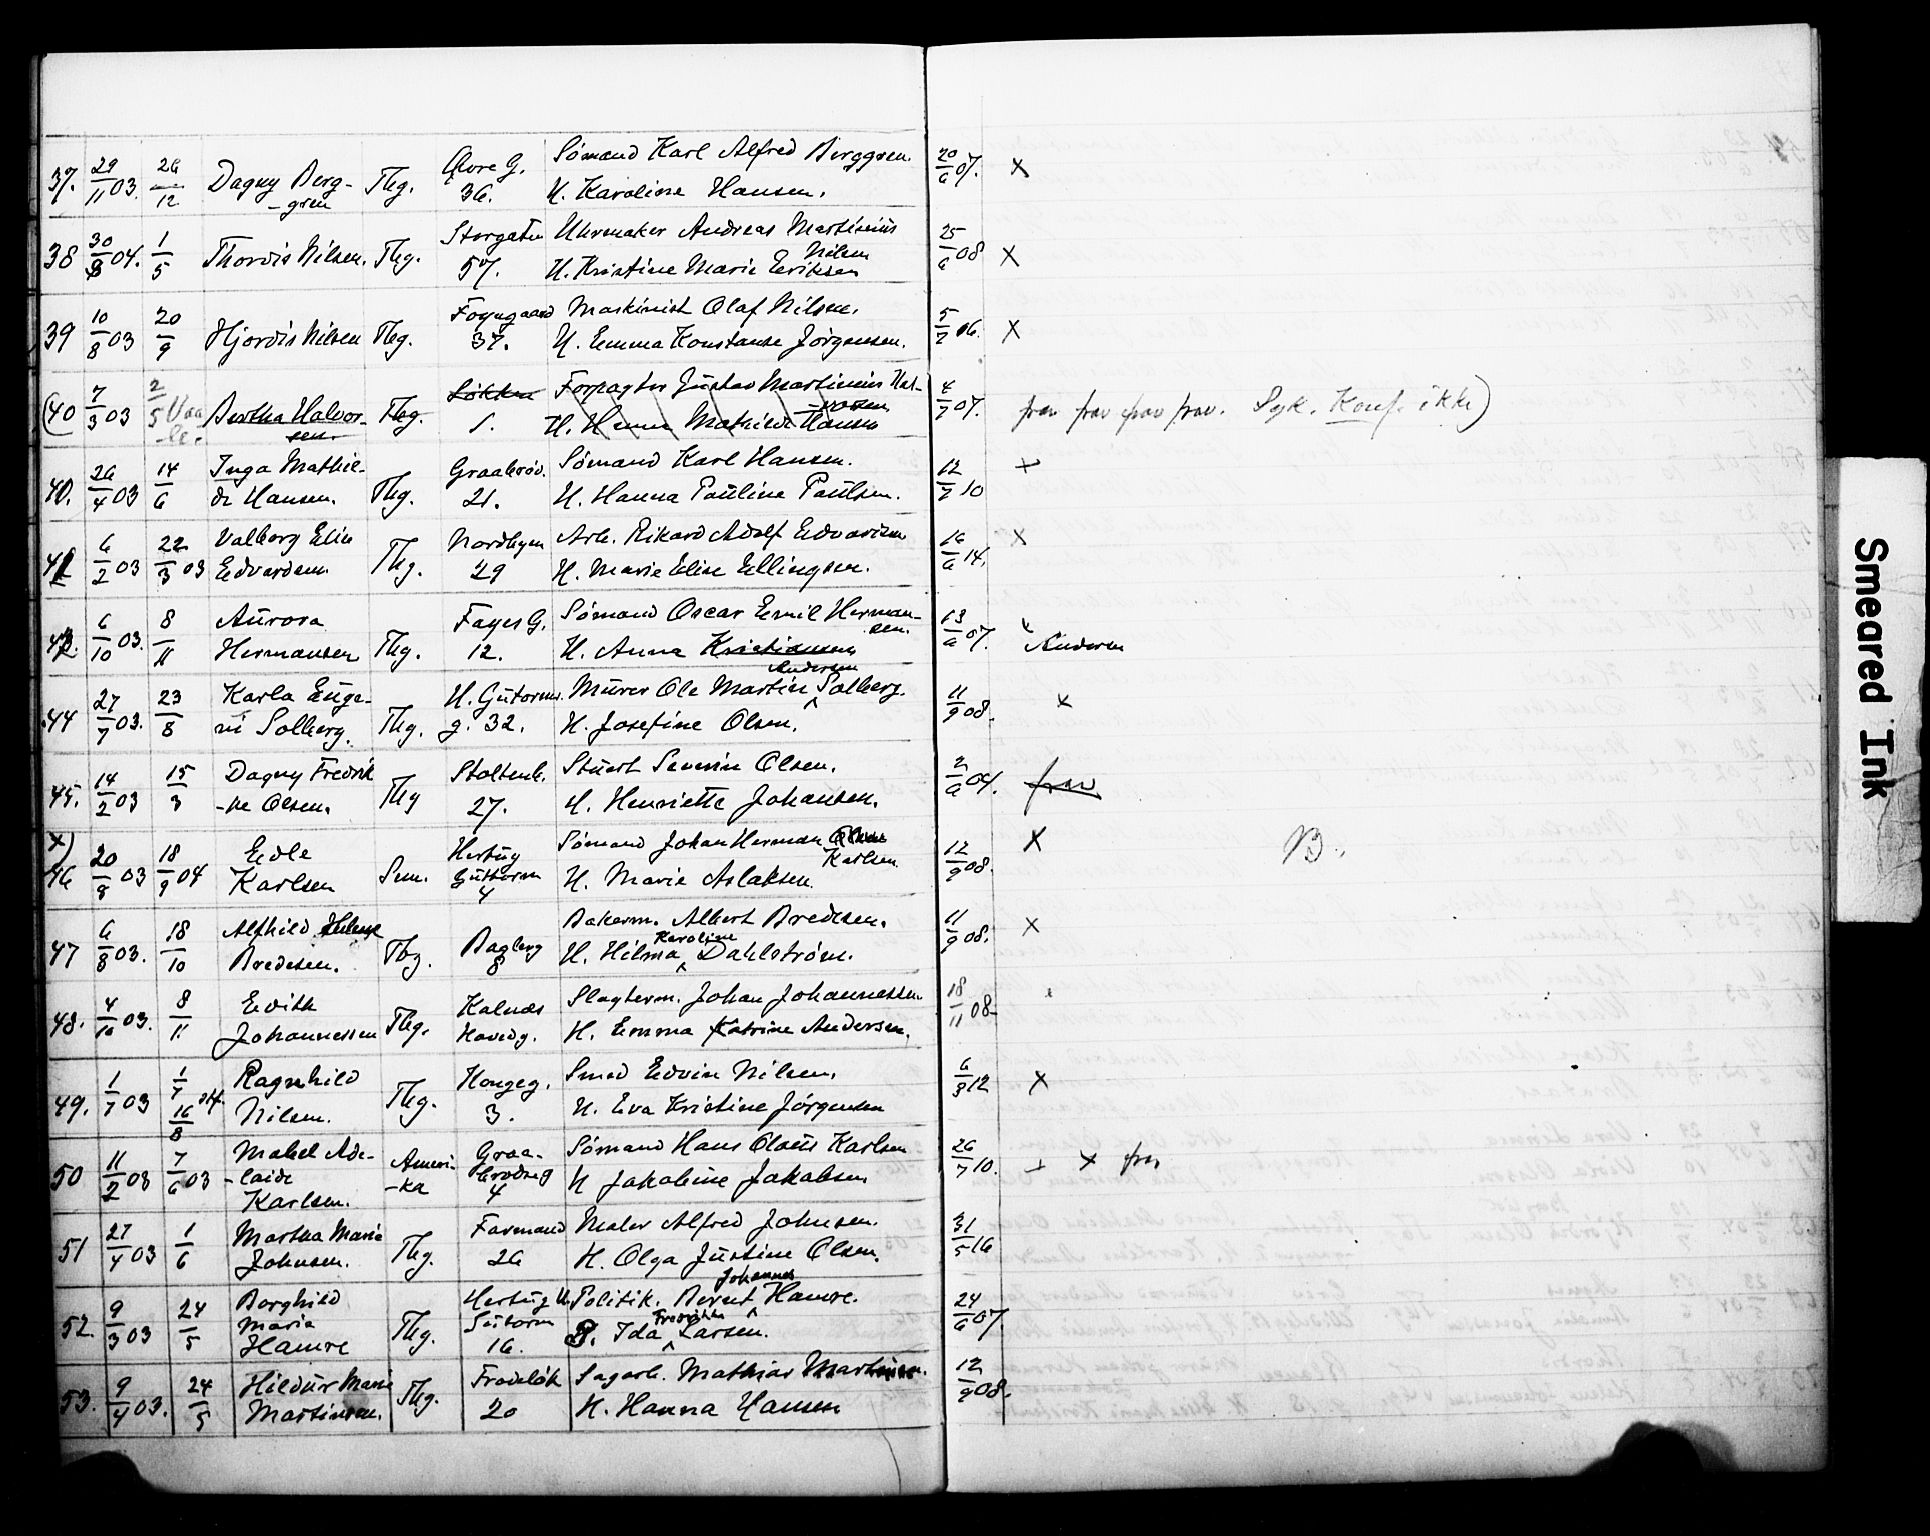 37. 29/11 03. 26/12 Dagny Berg-gren Tbg. Øvre G. 36. Sømand Karl Alfred Berggren. H. Karoline Hansen. 20/6 07. x
38 30/8 04. 1/5 Thordis Nilsen. Tbg. Storgaten 57. Uhrmaker Andreas Martinius Nilsen H. Kristine Marie Eriksen 25/6 08 x
39 10/8 03 20/9 Hjordis Nilsen Tbg. Foyngaard 37. Maskinist Olaf Nilsen. H. Emma Konstanse Jørgensen. 5/7 06. x
(40 7/3 03 2/5 Vaale. Bertha Halvorsen Tbg. Løkken 1. Forpagter Gustav Martinius Halvorsen H. Hanna Mathilde Hansen 4/7 07. frav frav frav frav. Syk. Konf. ikke)
40. 26/4 03 14/6 Inga Mathilde Hansen. Tbg. Graabrød. 21. Sømand Karl Hansen. H. Hanna Pauline Paulsen. 12/7 10 x
41 6/2 03 22/3 03 Valborg Elise Edvardsen. Tbg. Nordbyen 29 Arb. Rikard Adolf Edvardsen H. Marie Elise Ellingsen. 16/6 14. x
42. 6/10 03. 8/11 Aurora Hermansen Tbg. Fayes G. 12. Sømand Oscar Emil Hermansen. H. Anna Kristiansen Andersen 13/6 07. x Andersen
44 27/7 03. 23/8 Karla Eugeni Solberg. Tbg. H. Gutorms. g. 32. Murer Ole Martin Solberg. H. Josefine Olsen. 11/9 08. x
45. 14/2 03 15/3 Dagny Fredrik-ke Olsen. Tbg Stoltenb. 27. Stuert Severin Olsen. H. Henriette Johansen. 2/6 04. frav
x) 46 20/8 03 18/9 04 Edle Karlsen Sem. Hertug Guttorm 4 Sømand Johan Herman Karlsen H. Marie Aslaksen. 12/9 08. x B.
47 6/8 03. 18/10 Alfhild Helene Bredesen. Tbg. Bagberg 8 Bakerm. Albert Bredesen. H. Hilma Karoline Dahlstrøm. 11/9 08. x
48. 4/10 03. 8/11 Edith Johannessen Tbg. Kalnæs Hovedg. Slagterm. Johan Johannessen H. Emma Katrine Andersen. 18/11 08-
49. 1/7 03 1/7 16/8 Ragnhild Nilsen. Tbg. Kongeg. 3. Smed Edvin Nilsen. H. Eva Kristine Jørgensen 6/8 12 x
50 11/2 03 7/6 03 Mabel Ade-laide Karlsen. Ameri-ka Graa-brødreg 4 Sømand Hans Olaus Karlsen H Jakobine Jakobsen 26/7 10. x frav
51 27/4 03 1/6 Martha Marie Johnsen. Tbg. Farmand 26 Maler Alfred Johnsen. H. Olga Justine Olsen. 31/5 16
52. 9/3 03 24/5 Borghild Marie Hamre Tbg. Hertug Gutorm 16. Politik. Bernt Johannes Hamre. H. Ida Fredrikke Larsen. 24/6 07.
53. 9/4 03. 24/5 Hildur Marie Martinsen. Tbg. Frodeløk 20 Sagarb. Mathias Martinsen. H. Hanna Hansen 12/9 08.
Smeared Ink